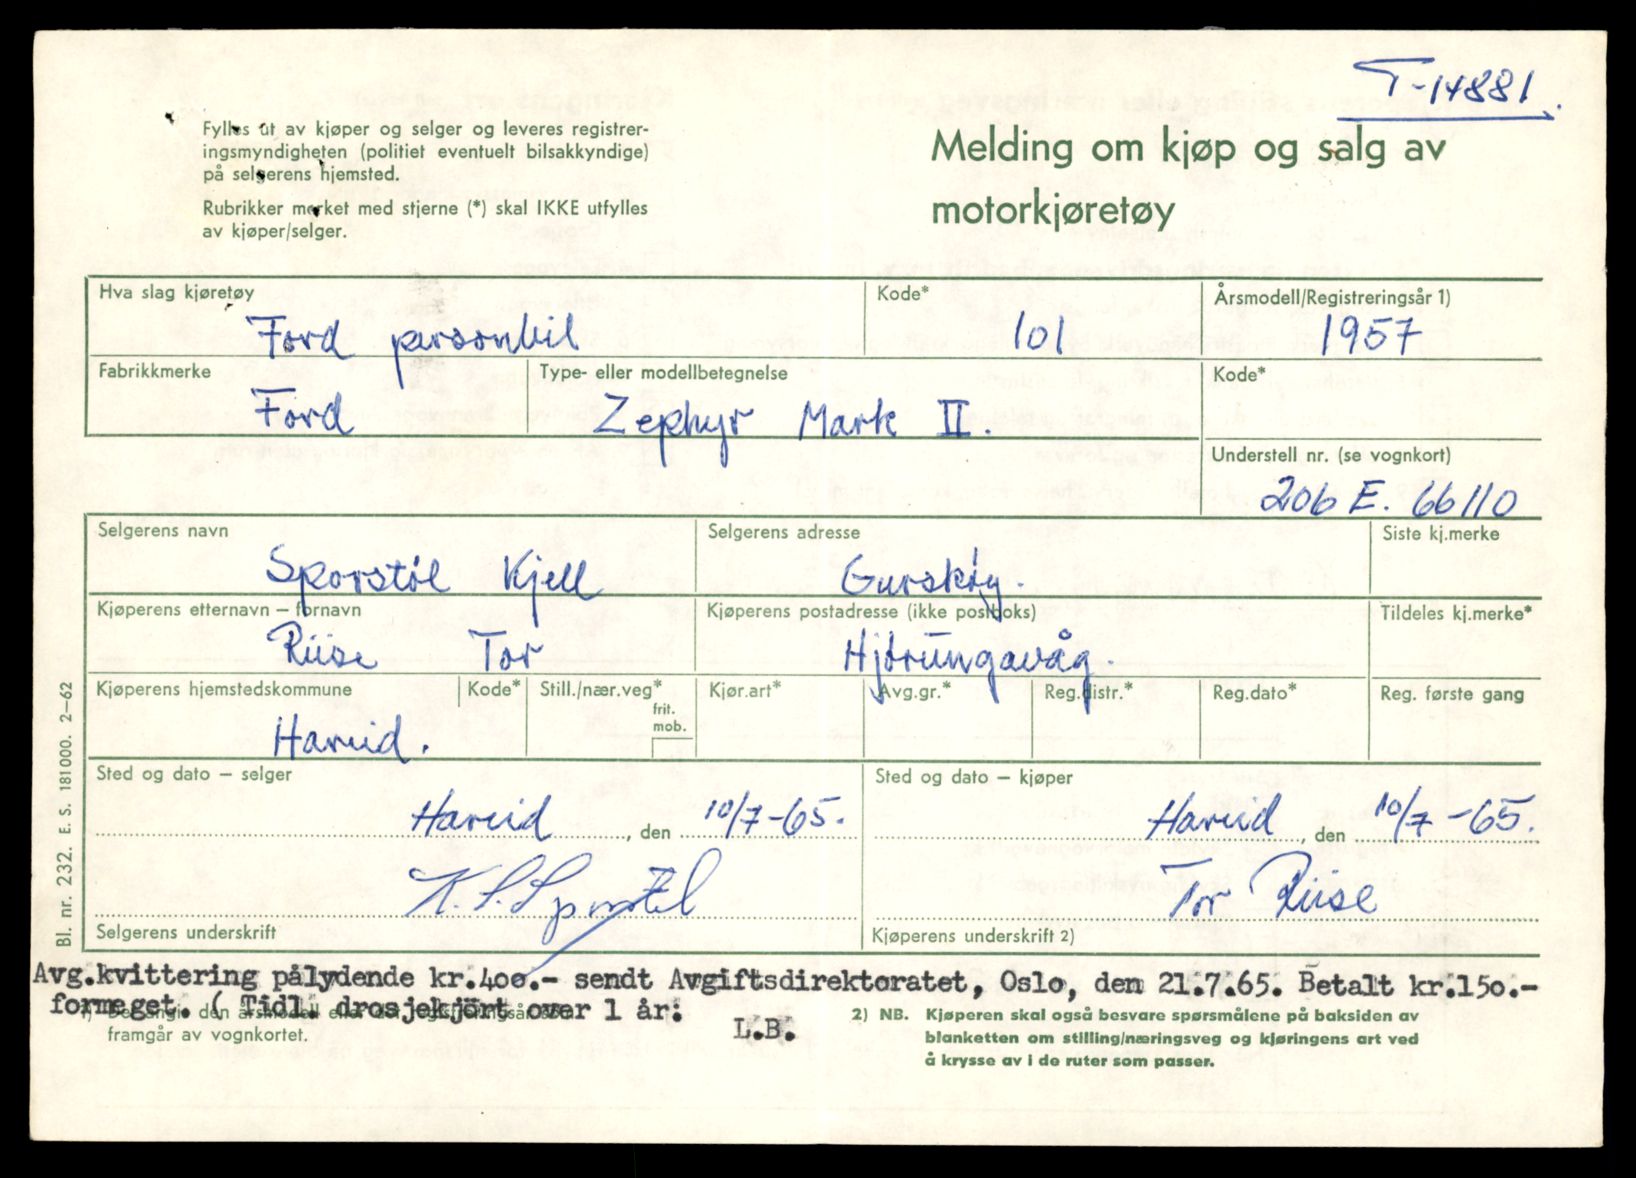 T-14881.
Fylles ut av kjøper og selger og leveres registrer-
ingsmyndigheten (politiet eventuelt bilsakkyndige)
på selgerens hjemsted.
Rubrikker merket med stjerne (*) skal IKKE utfylles
av kjøper/selger.
Melding om kjøp og salg av
motorkjøretøy
Hva slag kjøretøy
Ford personbil
Kode*
101
Årsmodell/Registreringsår 1)
1957
Fabrikkmerke
Ford
Type- eller modellbetegnelse
Zephyr Mark II.
Kode*
Understell nr. (se vognkort)
206 E. 66110
Selgerens navn
Sporstøl Kjell
Selgerens adresse
Gurskøy.
Siste kj.merke
Kjøperens etternavn – fornavn
Riise Tor
Kjøperens postadresse (ikke postboks)
Hjørungavåg.
Tildeles kj.merke*
Kjøperens hjemstedskommune
Hareid.
Kode*
Still./nær.veg*
frit.
mob.
Kjør.art*
Avg.gr.*
Reg.distr.*
Reg.dato*
Reg. første gang
Sted og dato – selger
Hareid, den 10/7-65.
K. S. Sporstøl
Selgerens underskrift
Sted og dato – kjøper
Hareid, den 10/7-65.
Tor Riise
Kjøperens underskrift 2)
Bl. nr. 232. E. S. 181000. 2–62
Avg.kvittering pålydende kr.400.- sendt Avgiftsdirektoratet, Oslo, den 21.7.65. Betalt kr.150.-
formeget. ( Tidl. drosjekjört over 1 år:
L.B.
1) den årsmodell eller
framgår av vognkortet.
2) NB. Kjøperen skal også besvare spørsmålene på baksiden av
blanketten om stilling/næringsveg og kjøringens art ved
å krysse av i de ruter som passer.